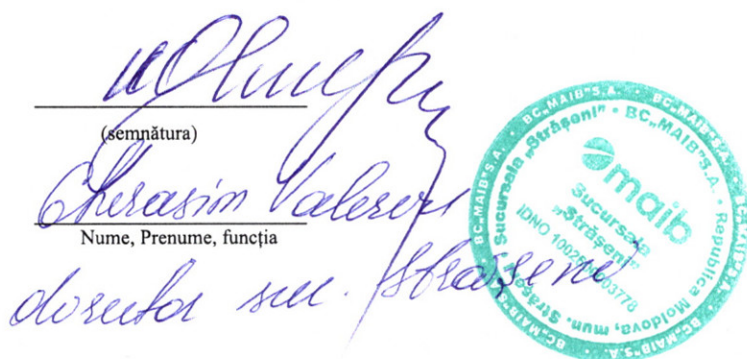 (semnătura)
Gherasim Valeriu
Nume, Prenume, funcția
director suc. Strășeni
BC„MAIB"S.A. • BC„MAIB"S.A. • BC„MAIB"S.A.
Sucursala „Strășeni" • BC„MAIB"S.A. • Republica Moldova, mun. Strășeni
maib
Sucursala
„Strășeni"
IDNO